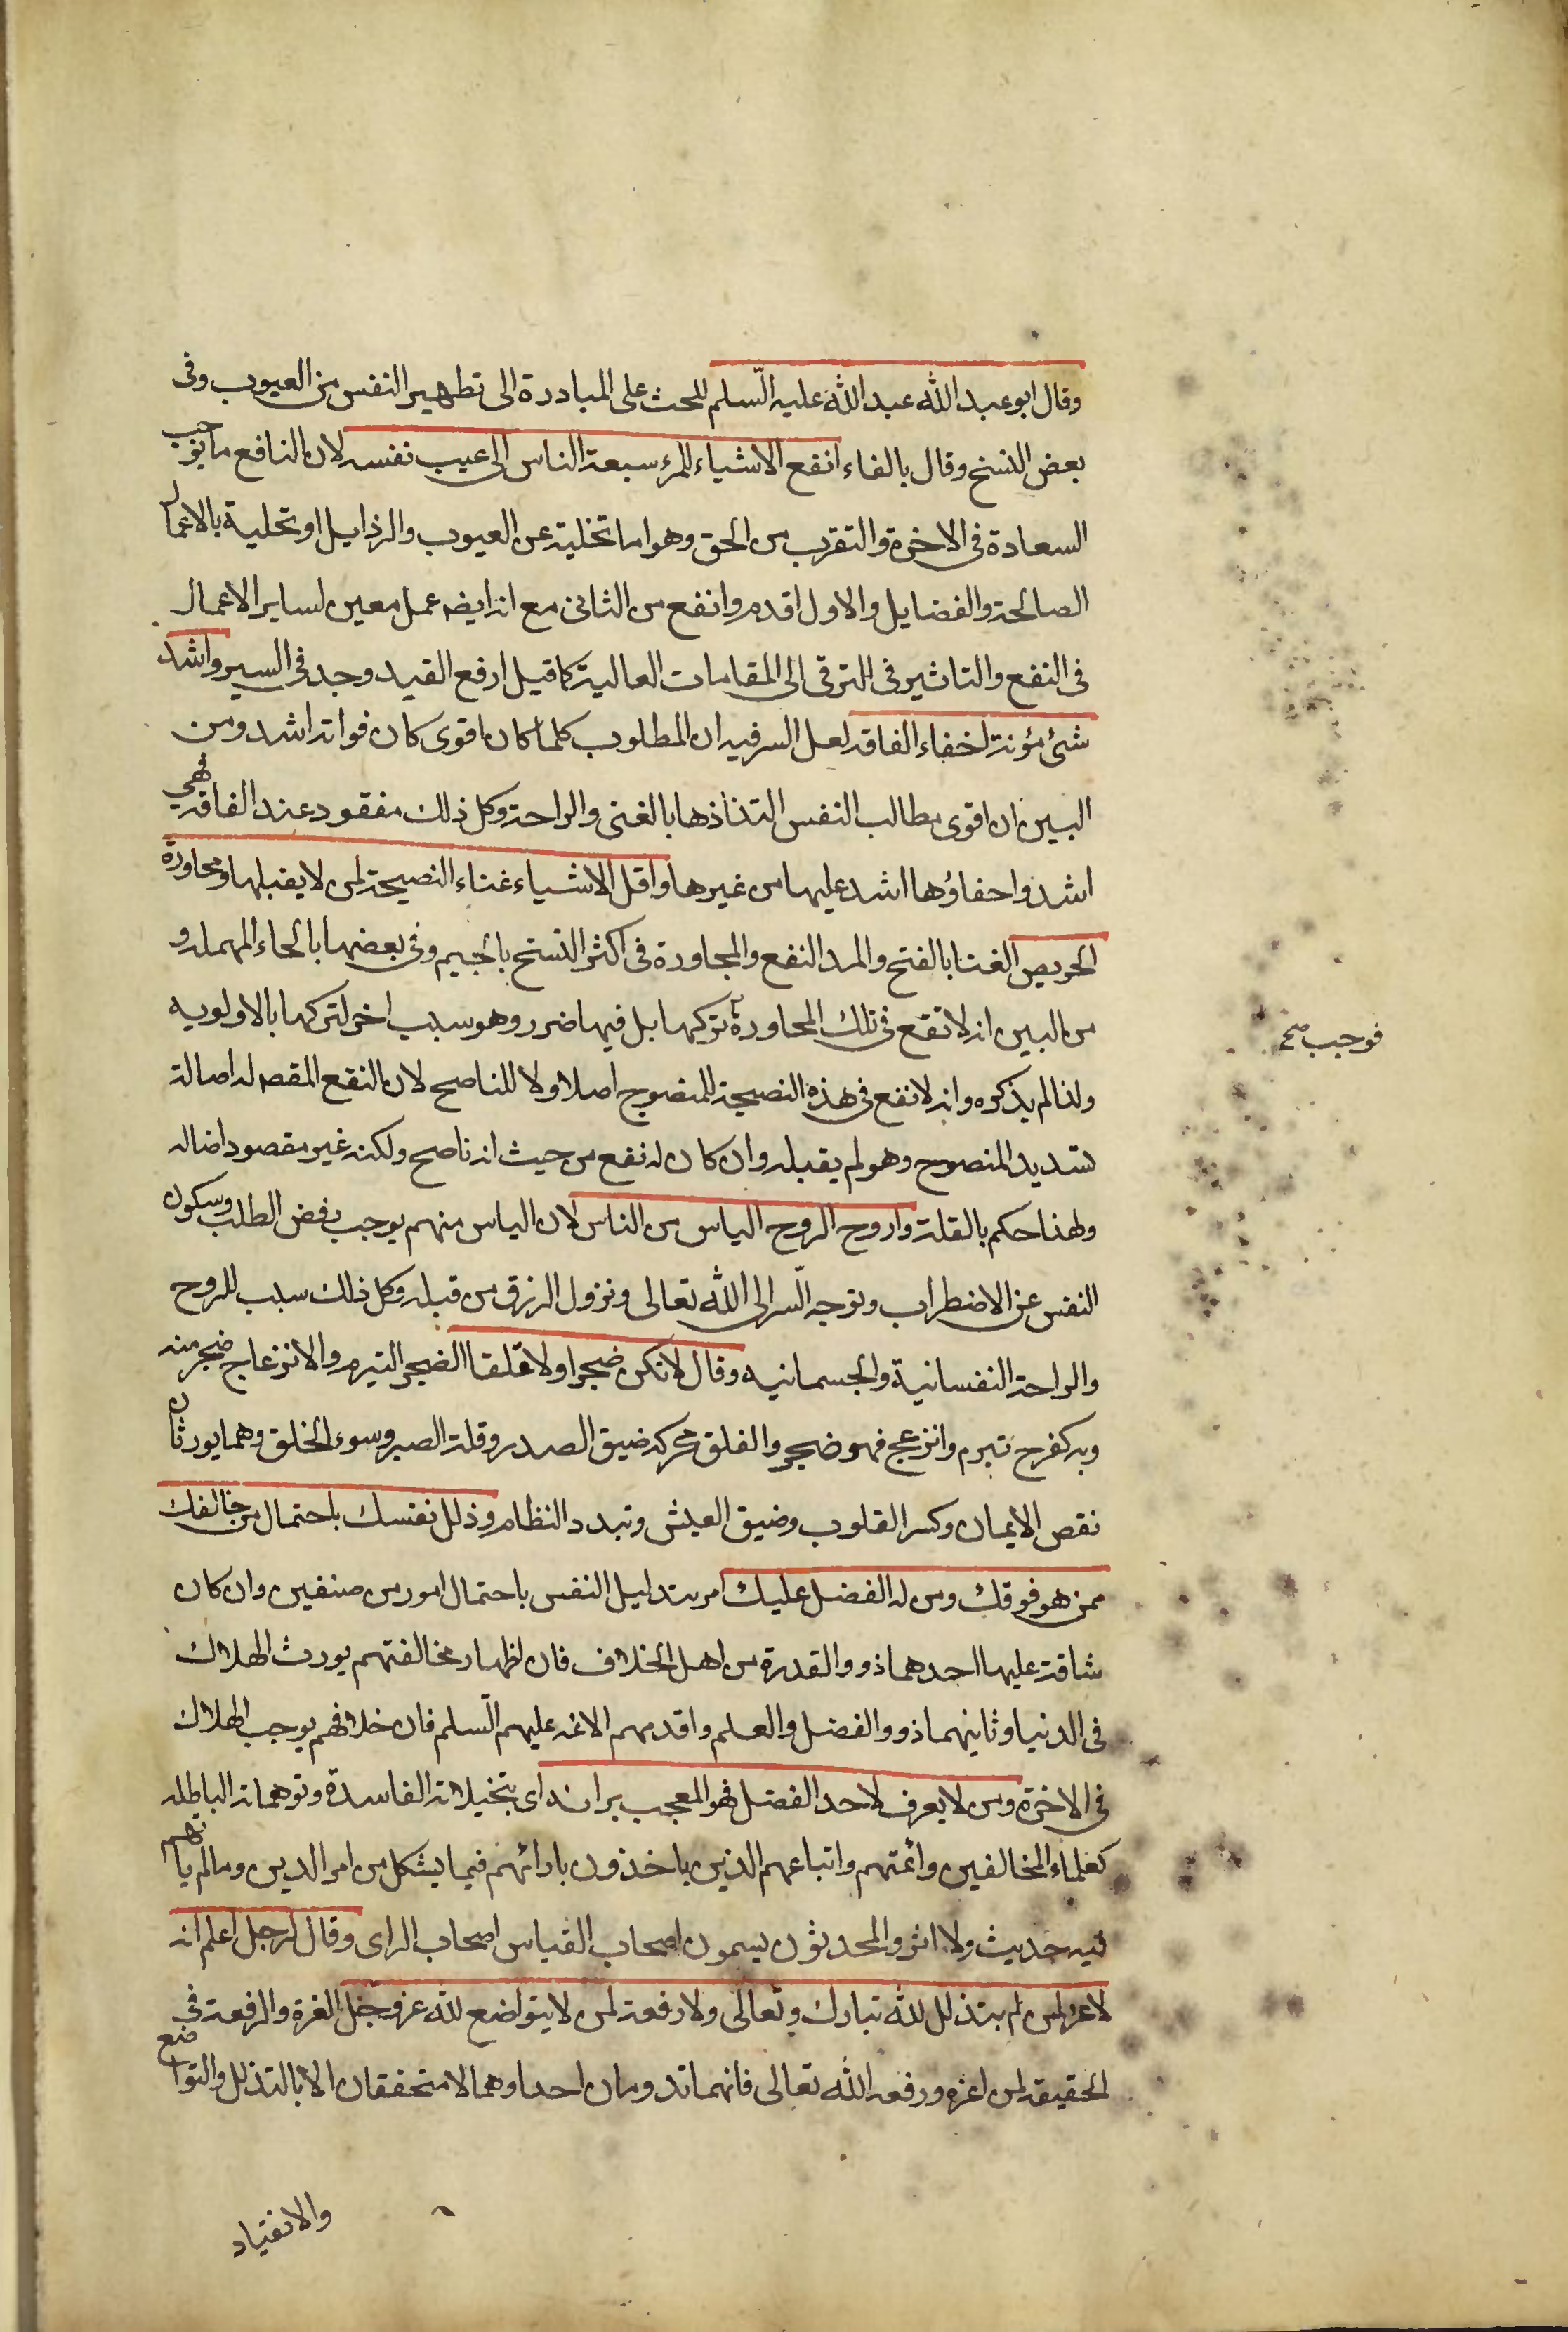 وقال ابو عبد الله عبد الله عليه السّلم للحث على المبادرة الى تطهير النفس من العيوب وفى
بعض النسخ وقال بالفاء انفع الاشياء للمرء سبعة الناس الى عيب نفسه لان النافع ما يوجب
السعادة فى الاخرة والتقرب من الحق وهو اما تخلية عن العيوب والرذايل او تحلية بالاعمال
الصالحة والفضايل والاول اقدم وانفع من الثانى مع انه ايضه عمل معين لساير الاعمال
فى النفع والتاثير فى الترقى الى المقامات العالية كما قيل ارفع القيد وجد فى السير واشد
شئ مؤنة اخفاء الفاقه لعل السر فيه ان المطلوب كلما كان اقوى كان فواته اشد ومن
البين ان اقوى مطالب النفس التذاذها بالغنى والراحة وكل ذلك مفقود عند الفاقه فهى
اشد واحفاؤها اشد عليها من غيرها واقل الاشياء غناء النصيحة لمن لا يقبلها ومجاورة
الحريص الغنا بالفتح والمد النفع والمجاورة فى اكثر النسخ بالجيم وفى بعضها بالحاء المهمله و
من البين انه لا تقع فى تلك المحاورة تركها بل فيها ضرر وهو سبب اخر لتركها بالاولويه
فوجب صح
ولذا لم يذكره وانه لا نفع فى هذه النصيحة للمنصوح اصلا ولا للناصح لان النفع المقصه له اصالة
تسديد المنصوح وهو لم يقبله وان كان له نفع من حيث انه ناصح ولكنه غير مقصود اضاله
ولهذا حكم بالقلة واروح الروح الياس من الناس لان الياس منهم يوجب رفض الطلب وسكون
النفس عن الاضطراب وتوجه السّر الى الله تعالى ونزول الرزق من قبله وكل ذلك سبب للروح
والراحة النفسانية والجسمانيه وقال لا تكن ضجرا ولا غلقا الضجر التبرم والانزعاج ضجر منه
وبه كفرح تبرم وانزعج فهو ضجر والغلق محركه ضيق الصدر وقلة الصبر وسوء الخلق وهما يورثان
نقص الايمان وكسر القلوب وضيق العيش وتبدد النظام وذلل نفسك باحتمال من خالفك
ممن هو فوقك ومن له الفضل عليك امر بتذليل النفس باحتمال امور من صنفين وان كان
شاقة عليها احدهما ذوو القدرة من اهل الخلاف فان اظهار مخالفتهم يورث الهلاك
فى الدنيا وثانيهما ذوو الفضل والعلم واقدمهم الائمه عليهم السّلم فان خلافهم يوجب الهلاك
فى الاخرة ومن لا يعرف لاحد الفضل فهو المعجب برايه اى بتخيلاته الفاسدة وتوهماته الباطله
كعلماء المخالفين وائمتهم واتباعهم الذين ياخذون بارائهم فيما يشكل من امر الدين وما لم ياتهم
فيه حديث ولا اثر والمحدثون يسمون اصحاب القياس اصحاب الراى وقال لرجل اعلم انه
لا عز لمن لم يتذلل لله تبارك وتعالى ولا رفعة لمن لا يتواضع لله عز وجل العزة والرفعة فى
الحقيقة لمن اعزه ورفعه الله تعالى فانهما تدومان احدا وهما لا متحققان الا بالتذلل والتواضع
والانقياد